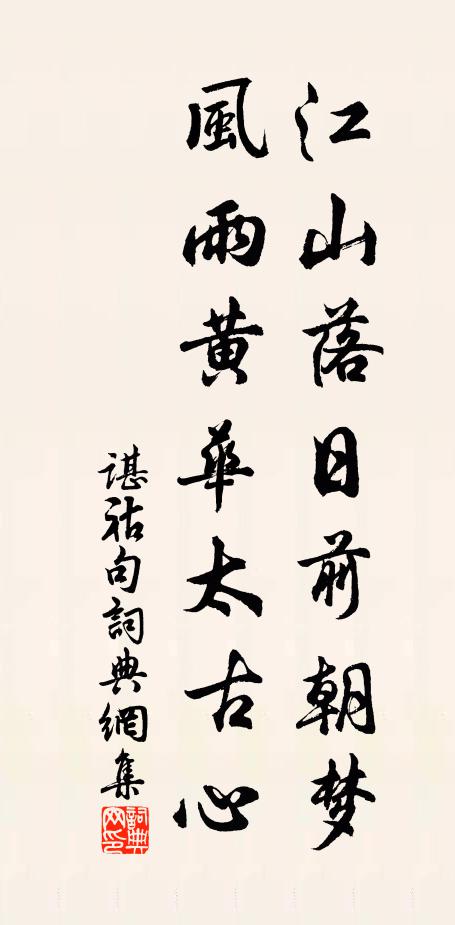 江山落日前朝梦
風雨黄華太古心
諶祜句詞典網集
詞典网印